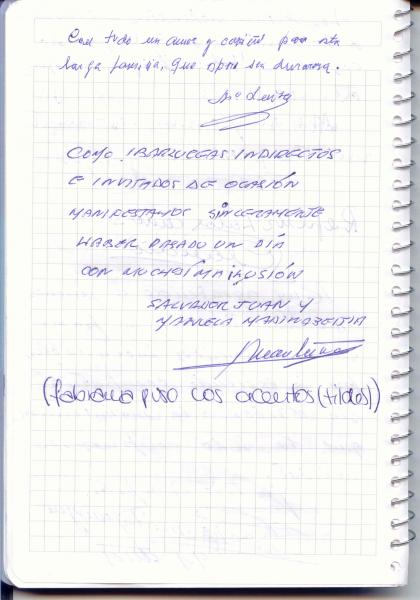 Con todo mi amor y cariño para esta
larga familia, que espero sea duradera.
Mª Luisa
COMO IBARLUCEAS INDIRECTOS
E INVITADOS DE OCASIÓN
MANIFESTAMOS SINCERAMENTE
HABER PASADO UN DÍA
CON MUCHÍSIMA ILUSIÓN
SALVADOR JUAN Y
MADINABEITIA
(fabiana puso los acentos (tildes))